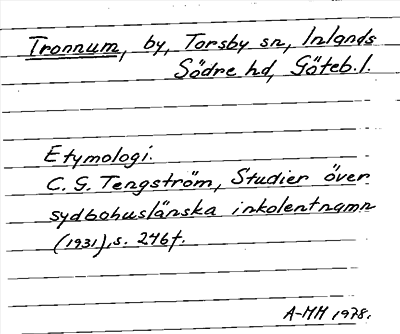 Tronnum, by, Torsby sn, Inlands
Södre hd, Göteb. l.
Etymologi.
C. G. Tengström, Studier över
sydbohuslänska inkolentnamn
(1931), s. 246f.
A-MH 1978.